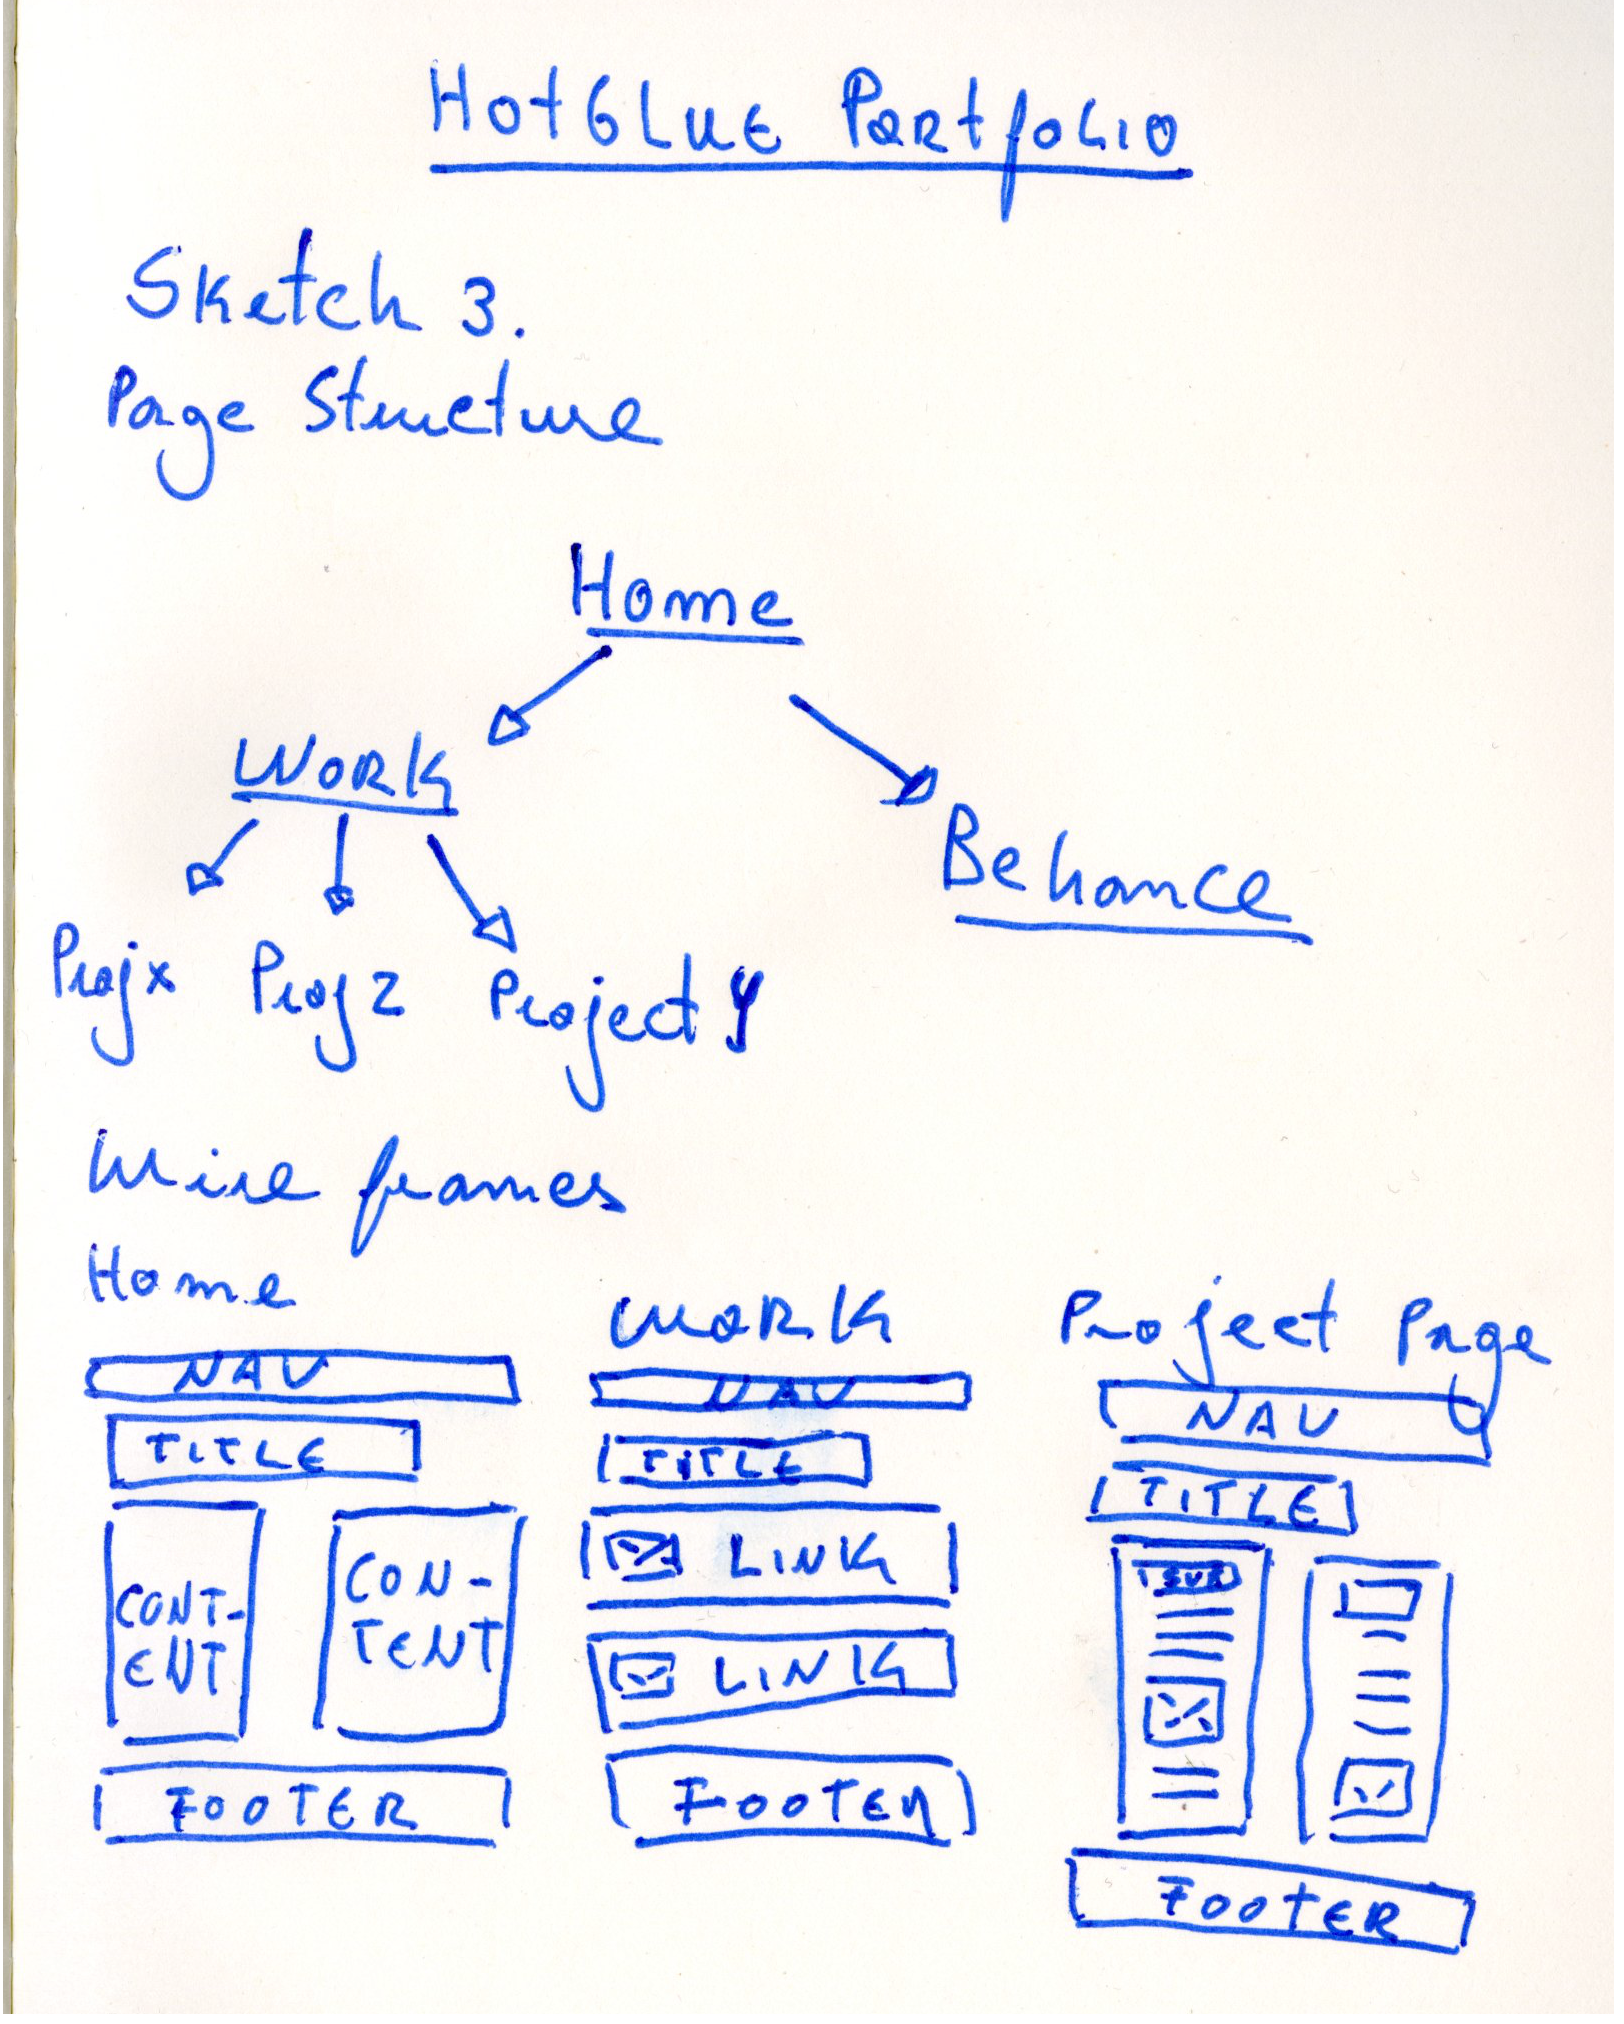 HotGLUE PORtfOLIO
Sketch 3.
Page Structure
Home
WORK
Behance
Projx Proj z Project y
Wire frames
Home WORK Project Page
NAV NAV NAV
TITLE TITLE TITLE
CONT-
ENT
CON-
TENT
LINK
LINK
FOOTER FOOTER FOOTER